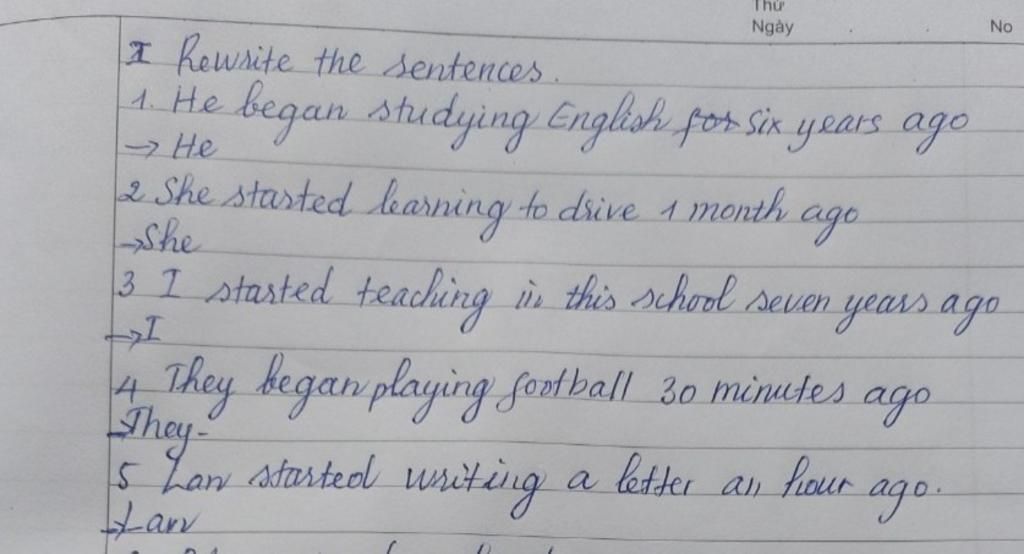 Thứ
Ngày . . No
I Rewrite the sentences.
1. He began studying English for six years ago
→ He
2 She started learning to drive 1 month ago
→She
3 I started teaching in this school seven years ago
→I
4 They began playing football 30 minutes ago
→They-
5 Lan started writing a letter an hour ago.
→Lan